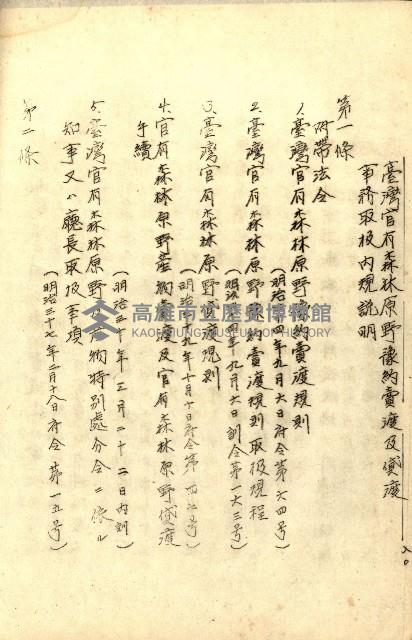 臺灣官有森林原野豫約賣渡及貸渡
事務取扱内規説明
第一條
附帶法令
1、臺灣官有森林原野豫約賣渡規則
（明治四年九月六日府令第六四号）
2、臺灣官有森林原野豫約賣渡規則取扱規程
九月六日訓令第一六三号）
3、臺灣官有森林原野貸渡規則
（明治 九年十月十日府令第四 号）
4、官有森林原野産物賣渡及官有森林原野貸渡
手續
（明治三十年三月二十二日内訓）
5、臺灣官有森林原野産物特別處分令ニ依ル
知事又ハ廳長取扱事項
（明治三十七年二月十八日府令第一五号）
第二條
高雄市立歷史博物館
KAOHSIUNG MUSEUM OF HISTORY